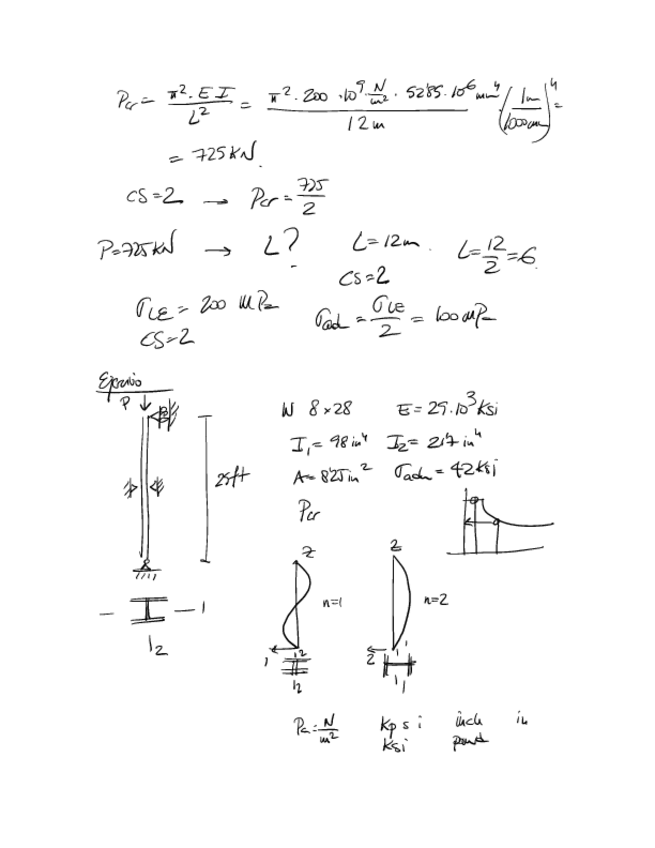 Pcr = π²·EI / L² = π²·200·10⁹ N/m² · 5285·10⁶ mm⁴ / 12m (1m / 1000mm)⁴ =
= 725 kN.
CS=2 → Pcr = 725/2
P=725kN → L? L=12m. L=12/2=6.
CS=2
σLE = 200 MPa σad = σLE/2 = 100 MPa
CS=2
Ejercicio
P
W 8x28 E=29.10³ ksi
I₁= 98 in⁴ I₂= 21'7 in⁴
25ft
A= 8'25 in² σadm = 42 ksi
Pcr
z z
n=1 n=2
- I - 1
1 2
2
12 1
Pa = N/m² Kpsi inch in
Ksi pound